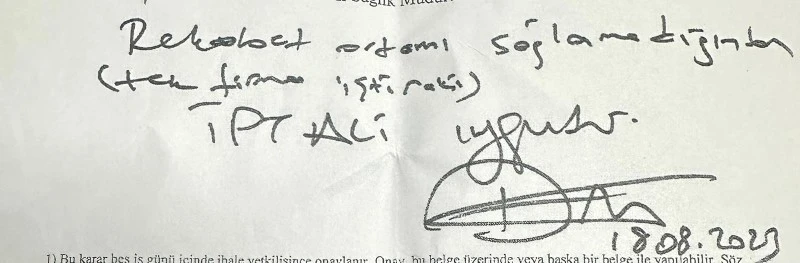 Sağlık Müdür
Rekabet ortamı sağlamadığından
(tek firma iştiraki)
İPTALİ uygundur.
18.08.2023
1) Bu karar beş iş günü içinde ihale yetkilisince onaylanır. Onay, bu belge üzerinde veya başka bir belge ile yapılabilir. Söz